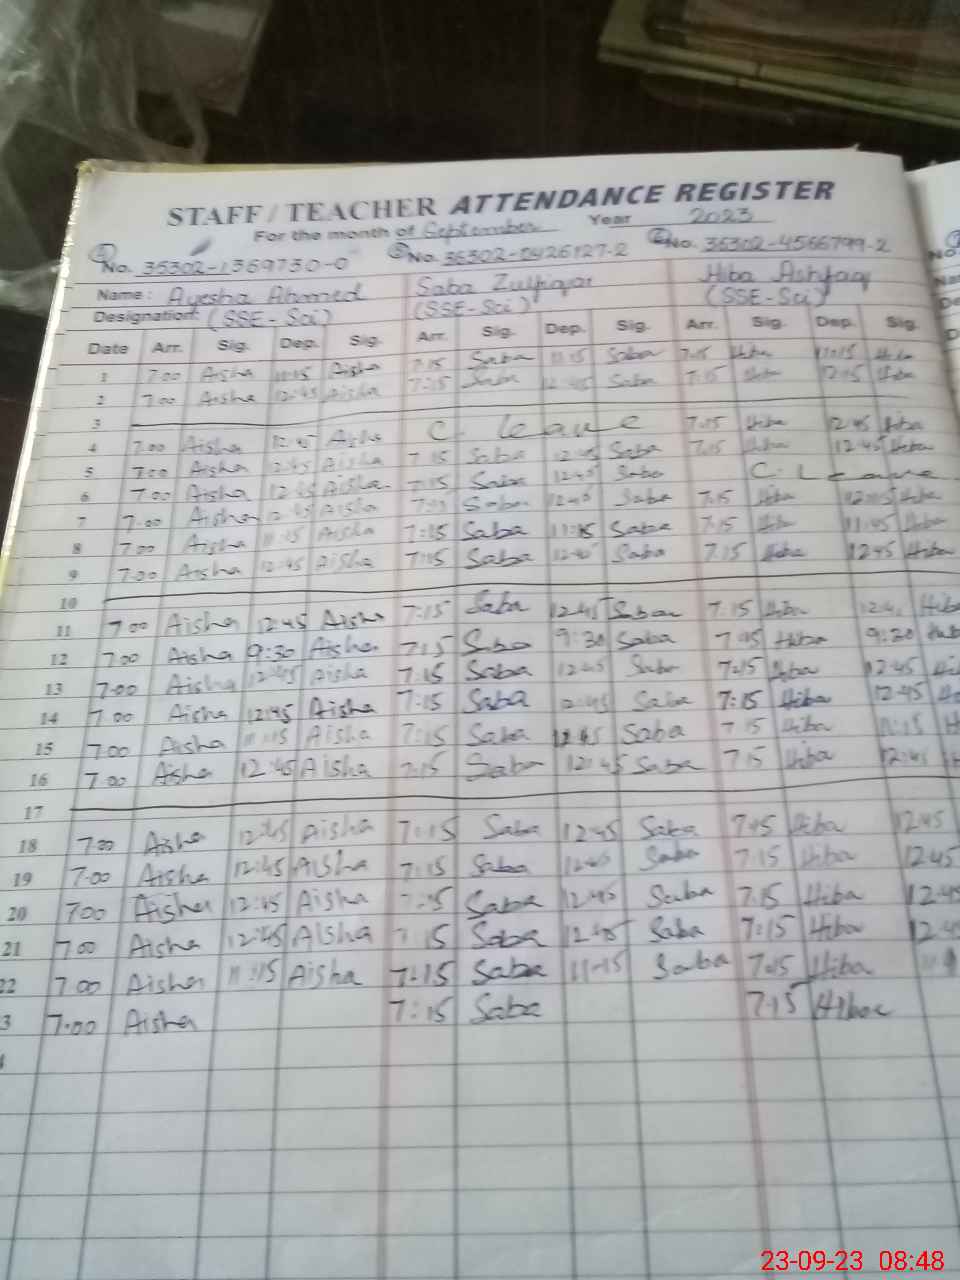 STAFF / TEACHER ATTENDANCE REGISTER
For the month of September Year 2023
① No. 35302-1369730-0 ② No. 35302-0426127-2 No. 35302-4566799-2
Name: Ayesha Ahmed Saba Zulfiqar Hiba Ashfaq
Designation: (SSE-Sci) (SSE-Sci) (SSE-Sci)
Date Arr. Sig. Dep. Sig. Arr. Sig. Dep. Sig. Arr. Sig. Dep. Sig.
1 7.00 Aisha 11:15 Aisha 7:15 Saba 11:15 Saba 7:15 Hiba Hiba
2 7.00 Aisha 12:45 Aisha 7:15 Saba 12:45 Saba 7:15 Hiba Hiba
3
4 7.00 Aisha 12:45 Aisha C. leave 7:15 Hiba 12:45 Hiba
5 7.00 Aisha 12:45 Aisha 7:15 Saba 12:45 Saba 7:15 Hiba 12:45 Hiba
6 7.00 Aisha 12:45 Aisha 7:15 Saba 12:45 Saba C. Leave
7 7.00 Aisha 12:45 Aisha Saba 12:45 Saba 7:15 Hiba Hiba
8 7.00 Aisha 11:15 Aisha 7:15 Saba Saba 7:15 Hiba 11:45 Hiba
9 7.00 Aisha 12:45 Aisha 7:15 Saba 12:45 Saba 7:15 Hiba 12:45 Hiba
10
11 7.00 Aisha 12:45 Aisha 7:15 Saba 12:45 Saba 7:15 Hiba Hiba
12 7.00 Aisha 9:30 Aisha 7:15 Saba 9:30 Saba Hiba
13 7.00 Aisha 12:45 Aisha 7:15 Saba 12:45 Saba 7:15 Hiba 12:45
14 7.00 Aisha 12:45 Aisha 7:15 Saba 12:45 Saba 7:15 Hiba 12:45
15 7.00 Aisha 11:15 Aisha 7:15 Saba 12:45 Saba 7:15 Hiba 11:15
16 7.00 Aisha 12:45 Aisha 7:15 Saba 12:45 Saba 7:15 Hiba
17
18 7.00 Aisha 12:45 Aisha 7:15 Saba 12:45 Saba Hiba 12:45
19 7.00 Aisha 12:45 Aisha 7:15 Saba 12:45 Saba 7:15 Hiba 12:45
20 7.00 Aisha 12:45 Aisha Saba 12:45 Saba 7:15 Hiba
21 7.00 Aisha 12:45 Aisha 7:15 Saba 12:45 Saba 7:15 Hiba
22 7.00 Aisha 11:15 Aisha 7:15 Saba 11:15 Saba 7:15 Hiba
3 7.00 Aisha 7:15 Saba 7:15 Hiba
23-09-23 08:48